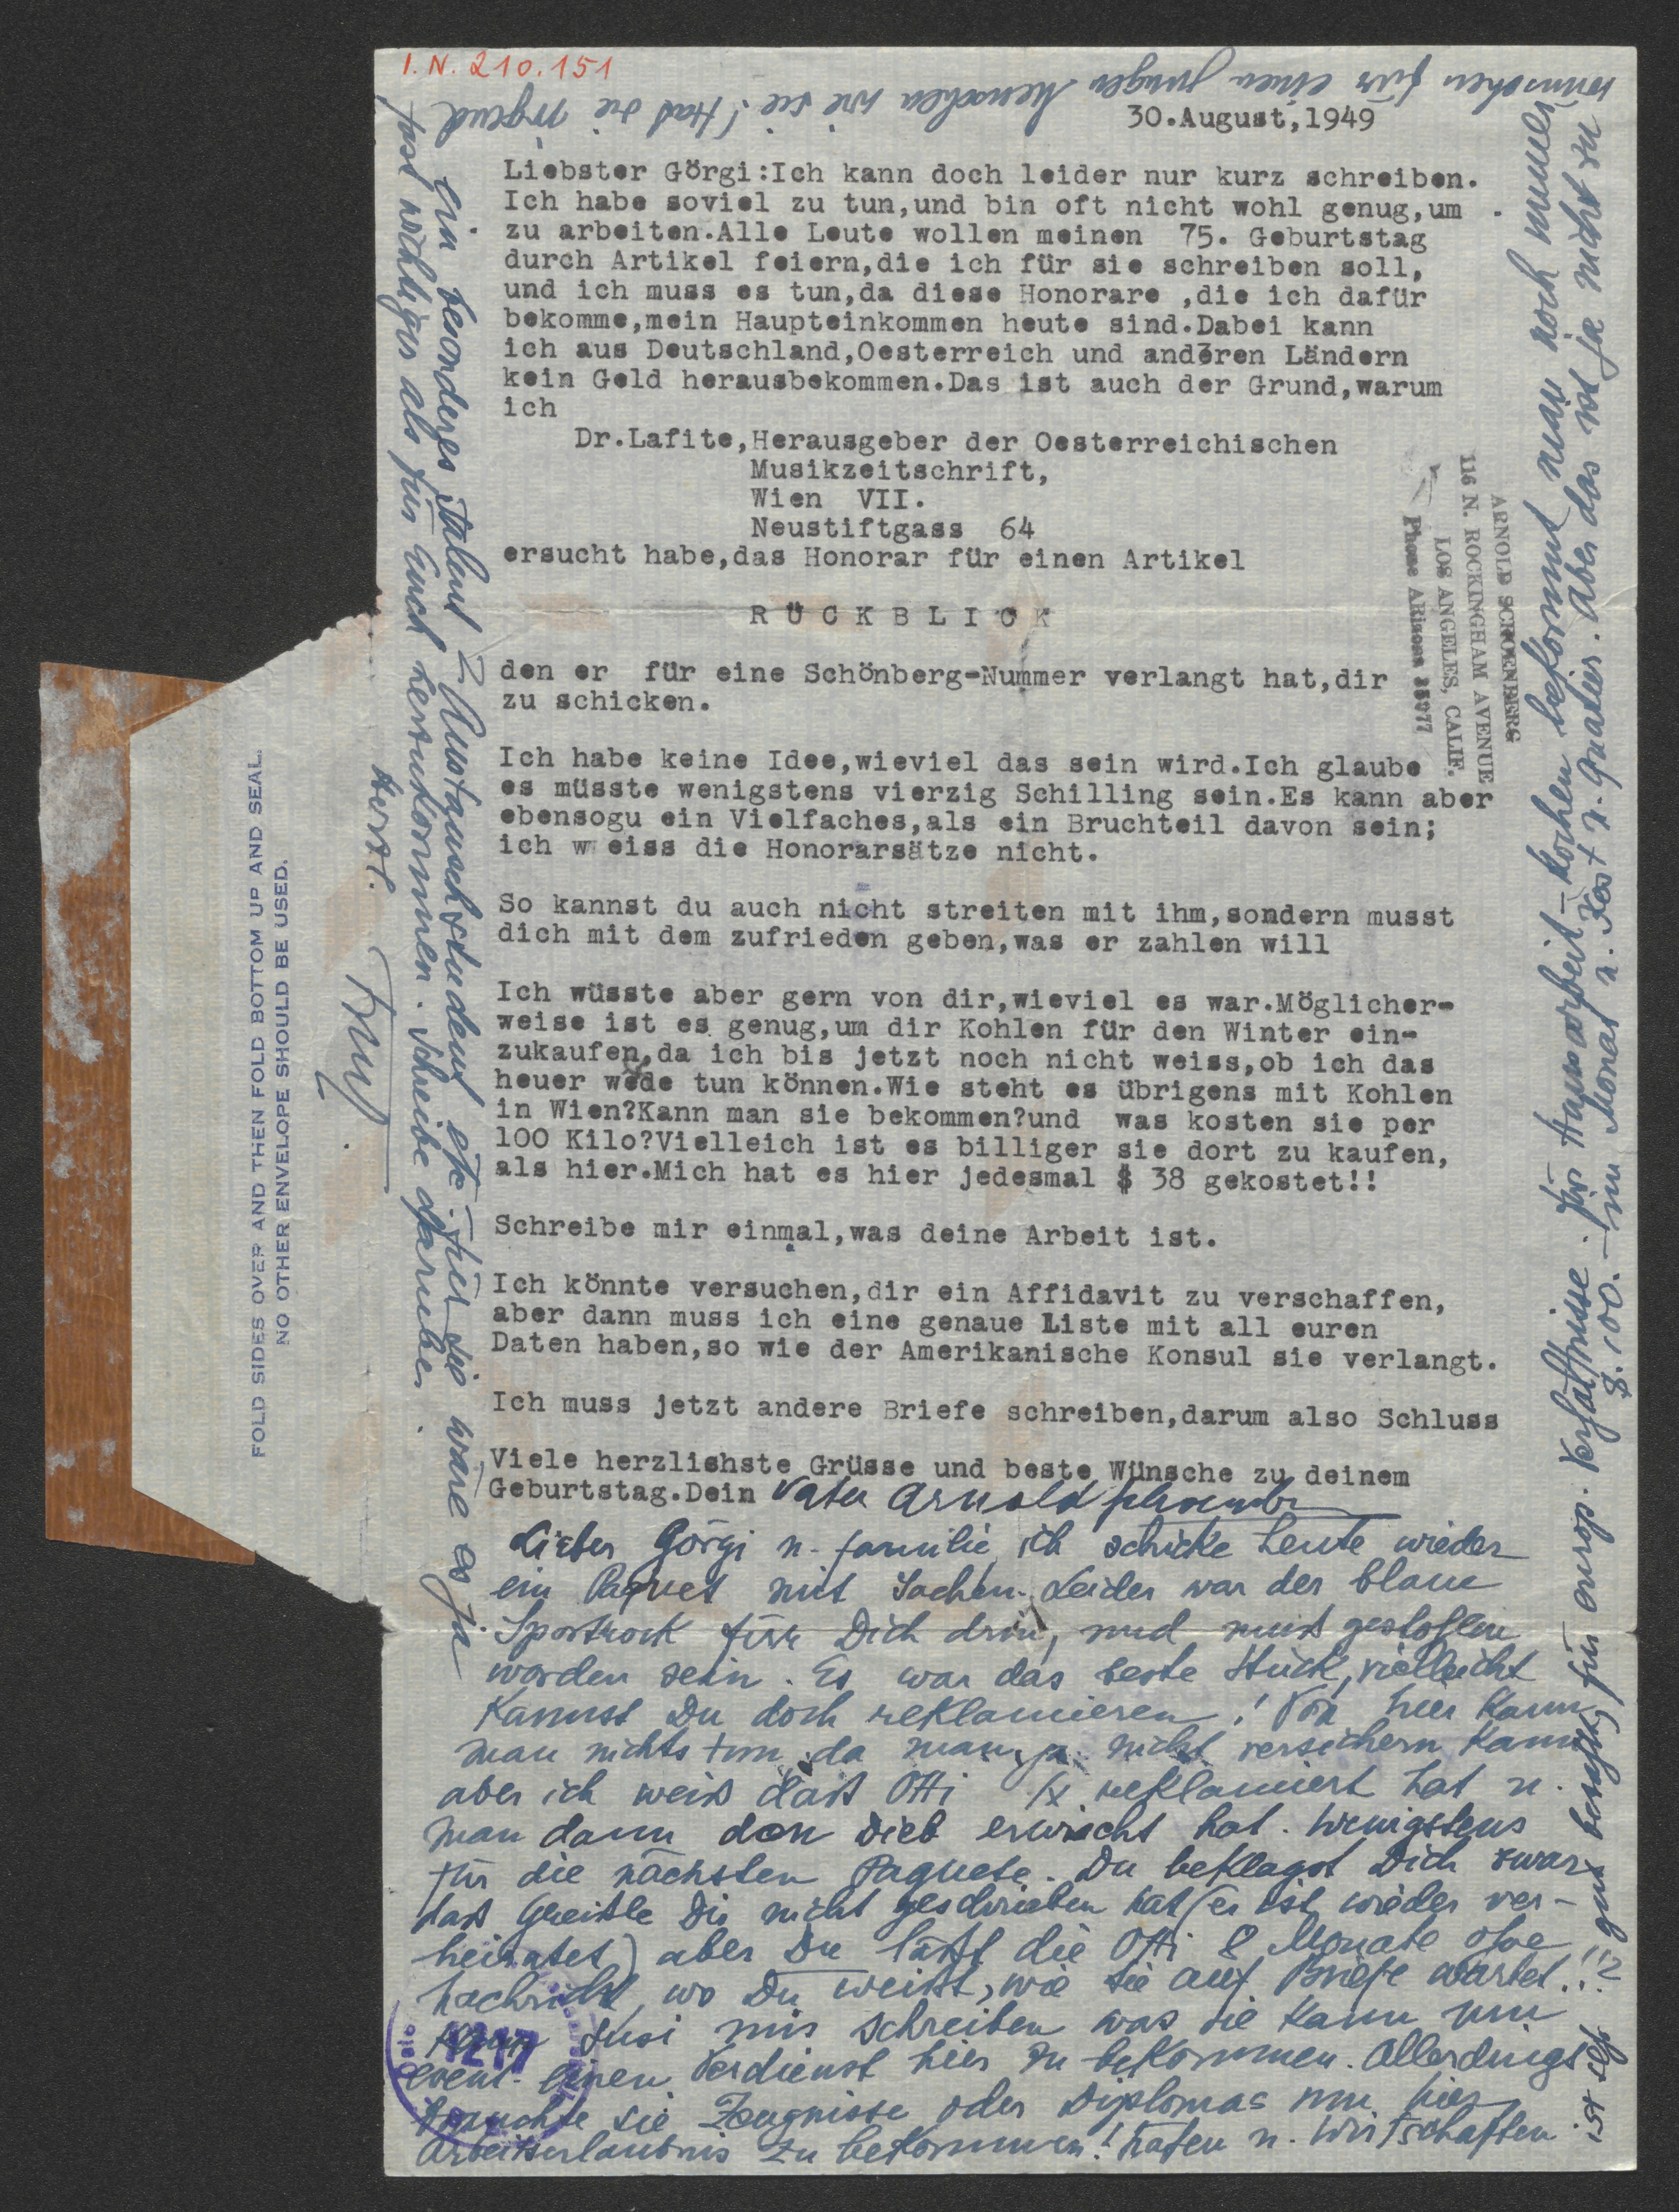 I.N. 210.151
30.August,1949
Liebster Görgi:Ich kann doch leider nur kurz schreiben.
Ich habe soviel zu tun,und bin oft nicht wohl genug,um
zu arbeiten.Alle Leute wollen meinen 75. Geburtstag
durch Artikel feiern,die ich für sie schreiben soll,
und ich muss es tun,da diese Honorare ,die ich dafür
bekomme,mein Haupteinkommen heute sind.Dabei kann
ich aus Deutschland,Oesterreich und anderen Ländern
kein Geld herausbekommen.Das ist auch der Grund,warum
ich
Dr.Lafite,Herausgeber der Oesterreichischen
Musikzeitschrift,
Wien VII.
Neustiftgass 64
ersucht habe,das Honorar für einen Artikel
RÜCKBLICK
den er für eine Schönberg-Nummer verlangt hat,dir
zu schicken.
Ich habe keine Idee,wieviel das sein wird.Ich glaube
es müsste wenigstens vierzig Schilling sein.Es kann aber
ebensogu ein Vielfaches,als ein Bruchteil davon sein;
ich weiss die Honorarsätze nicht.
So kannst du auch nicht streiten mit ihm,sondern musst
dich mit dem zufrieden geben,was er zahlen will
Ich wüsste aber gern von dir,wieviel es war.Möglicher-
weise ist es genug,um dir Kohlen für den Winter ein-
zukaufen,da ich bis jetzt noch nicht weiss,ob ich das
heuer wede tun können.Wie steht es übrigens mit Kohlen
in Wien?Kann man sie bekommen?und was kosten sie per
100 Kilo?Vielleich ist es billiger sie dort zu kaufen,
als hier.Mich hat es hier jedesmal $ 38 gekostet!!
Schreibe mir einmal,was deine Arbeit ist.
Ich könnte versuchen,dir ein Affidavit zu verschaffen,
aber dann muss ich eine genaue Liste mit all euren
Daten haben,so wie der Amerikanische Konsul sie verlangt.
Ich muss jetzt andere Briefe schreiben,darum also Schluss
Viele herzlishste Grüsse und beste Wünsche zu deinem
Geburtstag.Dein Vater Arnold Schoenberg
Lieber Görgi u. familie, ich schicke heute wieder
ein Paquet mit Sachen. Leider war der blaue
Sportrock für Dich drin, und muß gestohlen
worden sein. Es war das beste Stück, vielleicht
kannst Du doch reklamieren! Von hier kann
man nichts tun, da man ja nicht versichern kann
aber ich weiß daß Otti 1x reklamiert hat u.
man dann den Dieb erwischt hat. Wenigstens
für die nächsten Paquete. Du beklagst Dich zwar
daß Greissle Dir nicht geschrieben hat (er ist wieder ver-
heiratet) aber Du läßt die Otti 8 Monate ohne
Nachricht, wo Du weißt, wie sie auf Briefe wartet.!!
Kann Susi mir schreiben was sie kann um
event. einen Verdienst hier zu bekommen. Allerdings
brauchte sie Zeugnisse oder Diplomas um hier
Arbeitserlaubnis zu bekommen! Haten u. Wirtschaften
ist sehr gut bezahlt für europ. Verhältnisse. für Hausarbeit – kochen bekommt man noch immer
$. 100.– im Monat u. Kost u. Quatier. Aber das ist ja nicht zu
wünschen für einen jungen Menschen wie sie! Hat sie irgend
ein besonderes Talent? Austauschstudent etc. Für sie wäre es ja
fast wichtiger als für Euch herzukommen. Schreibe darüber.
Herzl.
Trudi.
ARNOLD SCHOENBERG
116 N. ROCKINGHAM AVENUE
LOS ANGELES, CALIF.
Phone ARizona 35077
FOLD SIDES OVER AND THEN FOLD BOTTOM UP AND SEAL.
NO OTHER ENVELOPE SHOULD BE USED.
1217